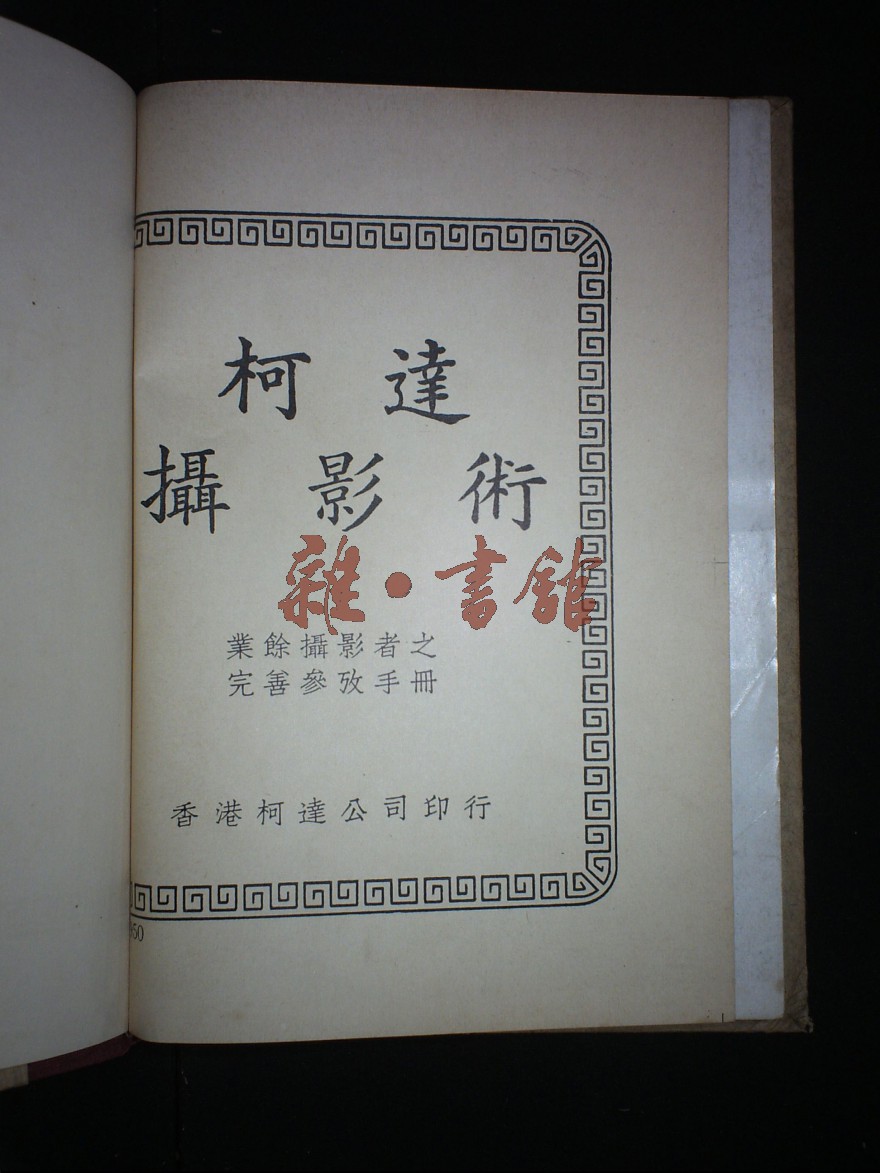 柯達
攝影術
雜·書館
業餘攝影者之
完善參攷手冊
香港柯達公司印行
950